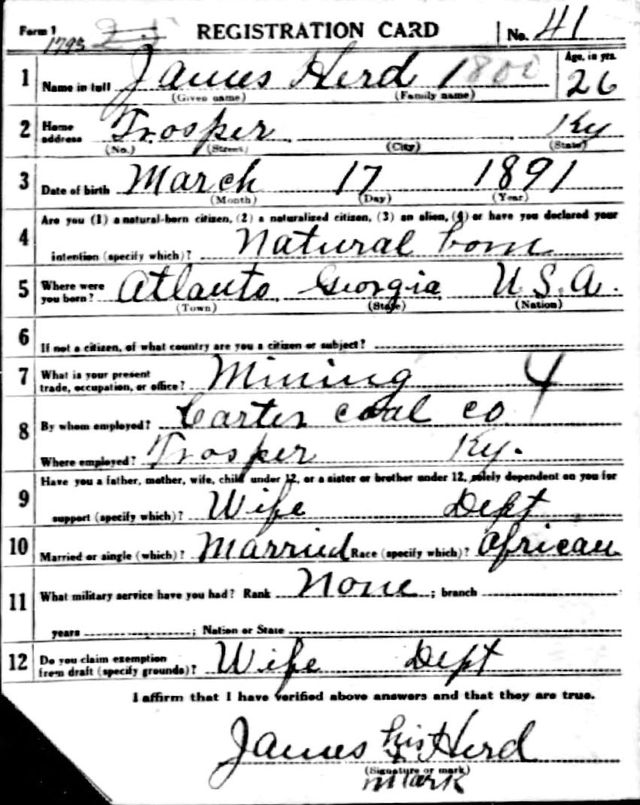 Form 1
1795
REGISTRATION CARD
No. 41
1 Name in full James Herd 1800
(Given name) (Family name)
Age, in yrs. 26
2 Home address Trosper Ky
(No.) (Street) (City) (State)
3 Date of birth March 17 1891
(Month) (Day) (Year)
4 Are you (1) a natural-born citizen, (2) a naturalized citizen, (3) an alien, (4) or have you declared your
intention (specify which)? Natural born
5 Where were you born? Atlanta Georgia U.S.A.
(Town) (State) (Nation)
6 If not a citizen, of what country are you a citizen or subject?
7 What is your present trade, occupation, or office? Mining 4
8 By whom employed? Carter coal co
Where employed? Trosper Ky.
9 Have you a father, mother, wife, child under 12, or a sister or brother under 12, solely dependent on you for
support (specify which)? Wife Dept
10 Married or single (which)? Married Race (specify which)? African
11 What military service have you had? Rank None ; branch
years ; Nation or State
12 Do you claim exemption from draft (specify grounds)? Wife Dept
I affirm that I have verified above answers and that they are true.
James his Herd
(Signature or mark)
mark